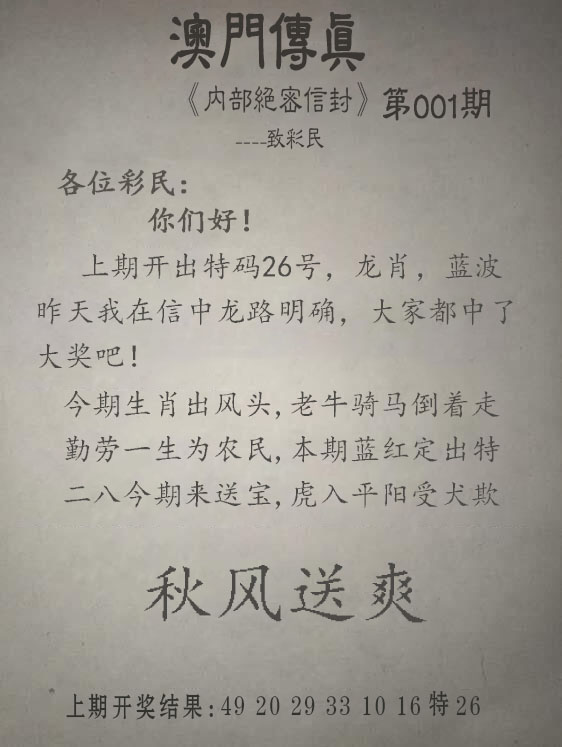 澳門傳眞
《内部絕密信封》第001期
----致彩民
各位彩民：
你们好！
上期开出特码26号，龙肖，蓝波
昨天我在信中龙路明确，大家都中了
大奖吧！
今期生肖出风头,老牛骑马倒着走
勤劳一生为农民,本期蓝红定出特
二八今期来送宝,虎入平阳受犬欺
秋风送爽
上期开奖结果:49 20 29 33 10 16 特 26